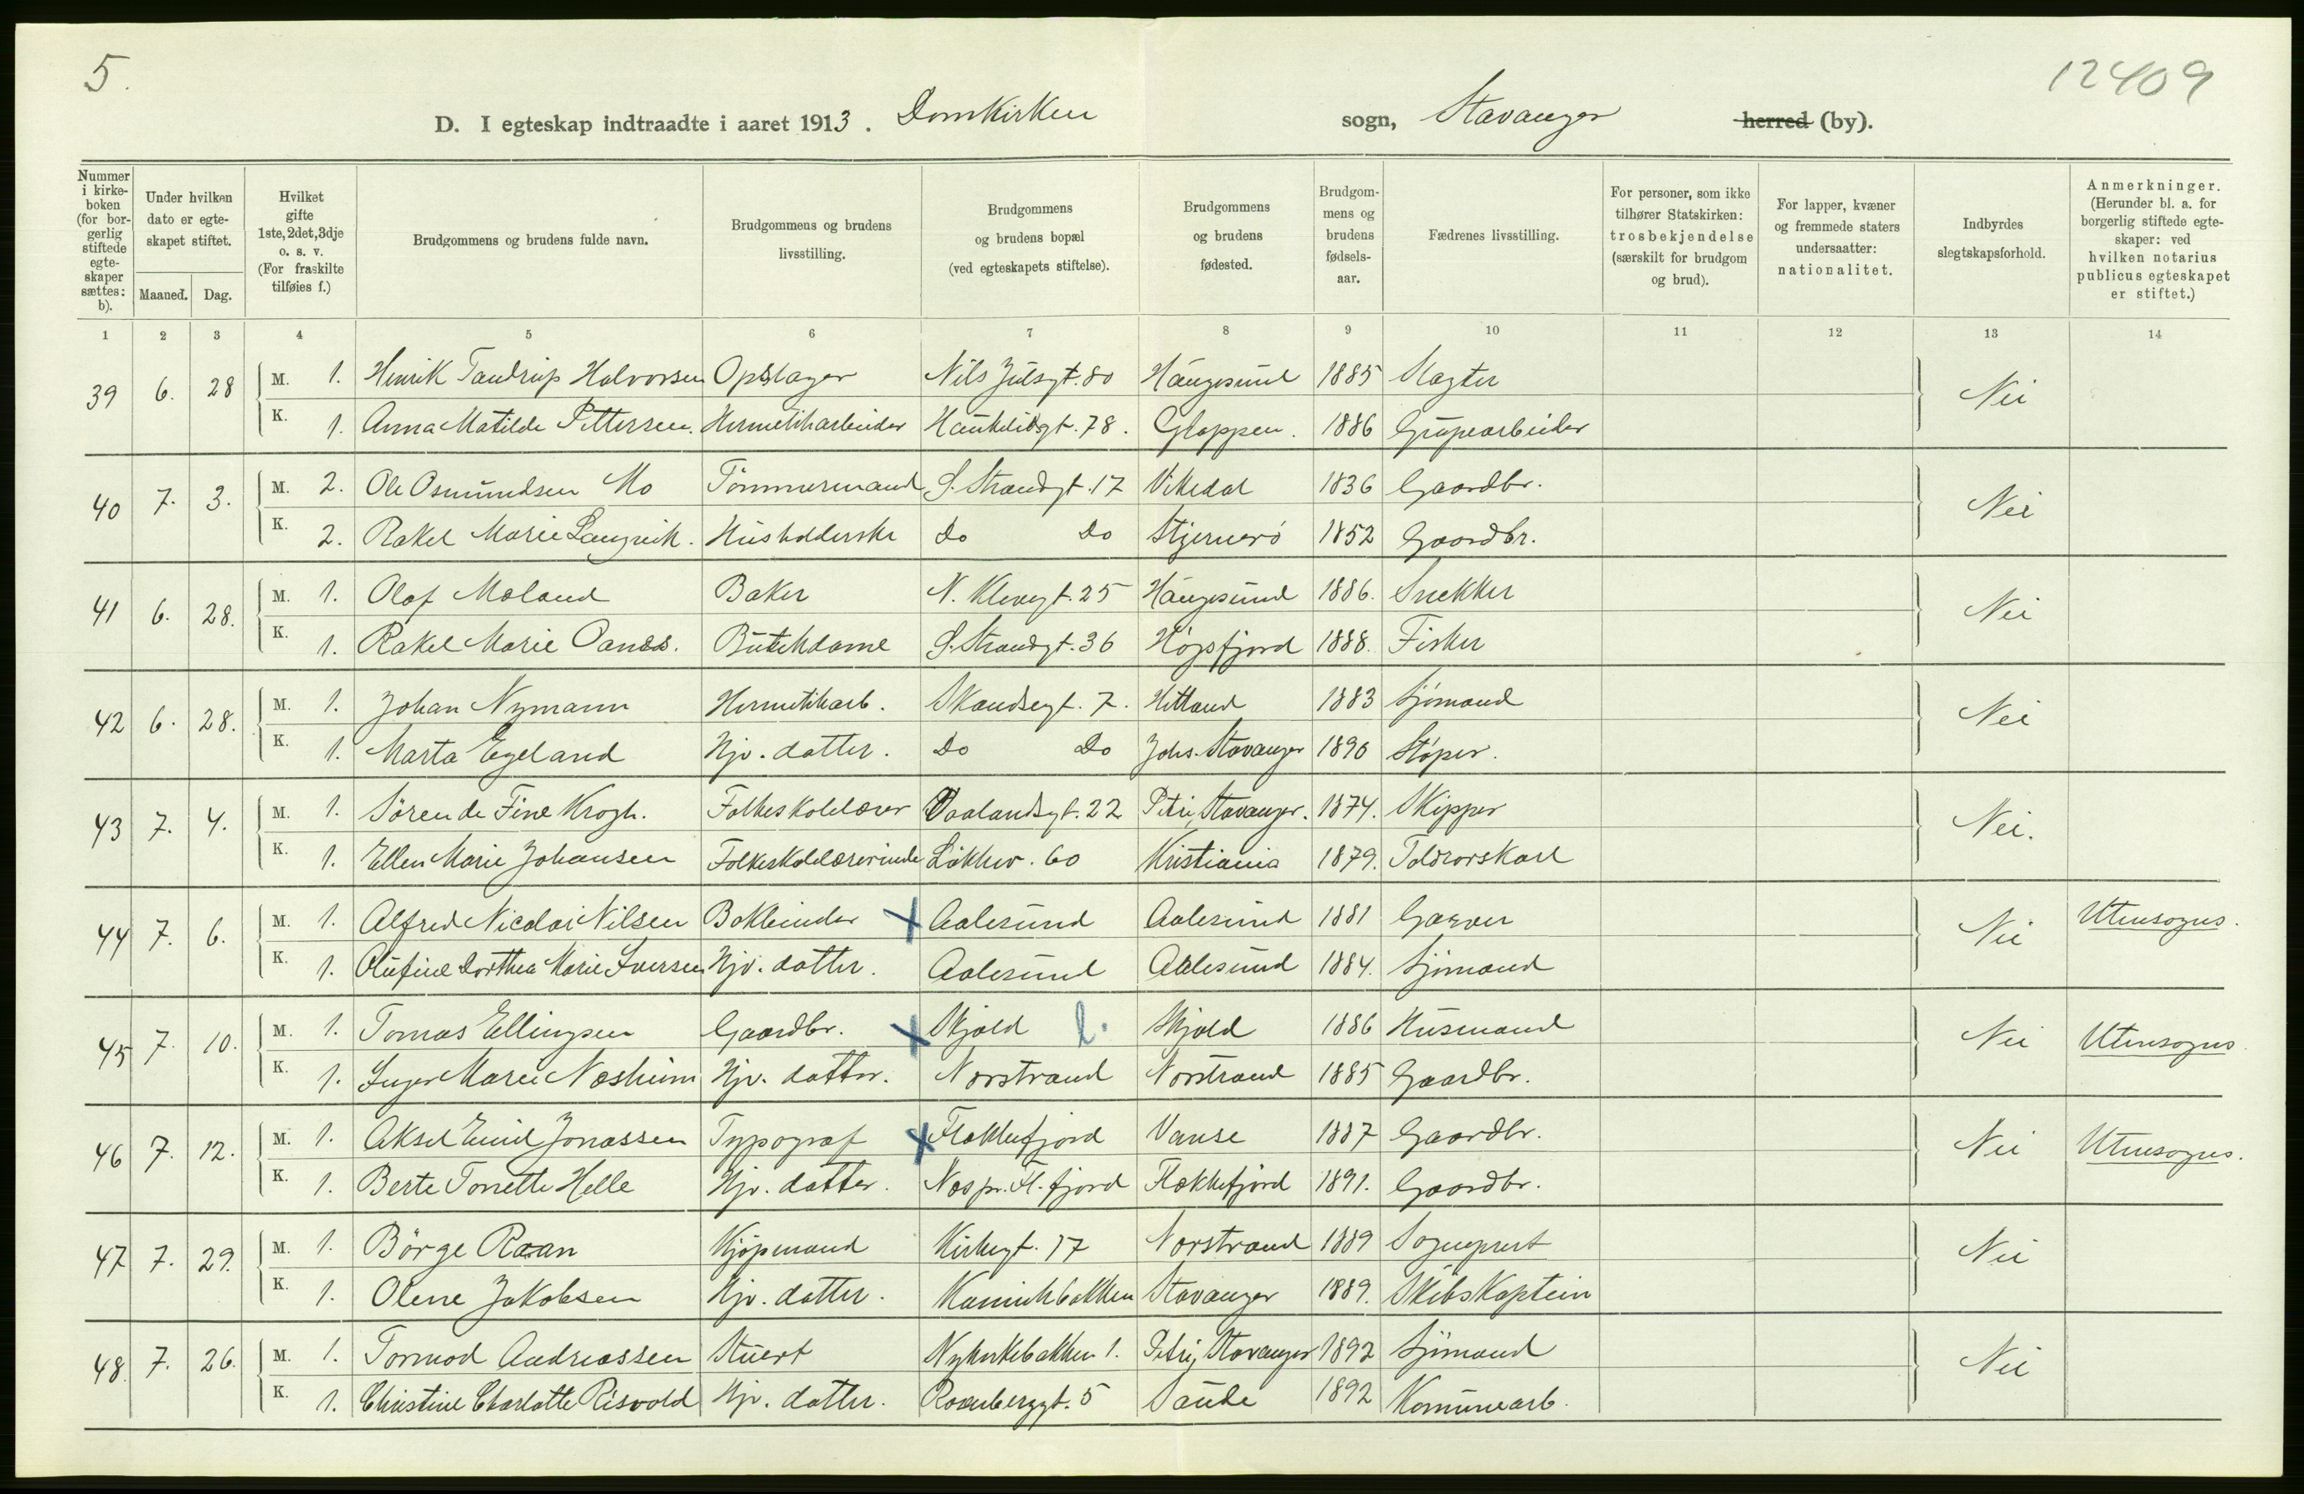 5.
12409
D. I egteskap indtraadte i aaret 1913. Domkirken sogn, Stavanger herred (by).
Nummer i kirke-boken (for bor-gerlig stiftede egte-skaper sættes: b).
Under hvilken dato er egte-skapet stiftet.
Maaned. Dag.
Hvilket gifte 1ste, 2det, 3dje o. s. v. (For fraskilte tilføies f.)
Brudgommens og brudens fulde navn.
Brudgommens og brudens livsstilling.
Brudgommens og brudens bopæl (ved egteskapets stiftelse).
Brudgommens og brudens fødested.
Brudgom-mens og brudens fødsels-aar.
Fædrenes livsstilling.
For personer, som ikke tilhører Statskirken: trosbekjendelse (særskilt for brudgom og brud).
For lapper, kvæner og fremmede staters undersaatter: nationalitet.
Indbyrdes slegtskapsforhold.
Anmerkninger. (Herunder bl. a. for borgerlig stiftede egte-skaper: ved hvilken notarius publicus egteskapet er stiftet.)
1 2 3 4 5 6 7 8 9 10 11 12 13 14
39 6. 28 M. 1. Henrik Tandrup Halvorsen Opslager Nils Julsgt. 80 Haugesund 1885 Slagter Nei
K. 1. Anna Matilde Pettersen. Hermetikarbeider Haukeligt. 78. Gloppen. 1886 Grupearbeider
40 7. 3. M. 2. Ole Osmundsen Mo Tömmermand S. Strandgt. 17 Vikedal 1836 Gaardbr. Nei
K. 2. Rakel Marie Langvik. Husholderske Do Do Stjernerö 1852 Gaardbr.
41 6. 28. M. 1. Olaf Moland Baker N. Klevegt. 25 Haugesund 1886. Snekker Nei
K. 1. Rakel Marie Oanes. Butikdame S. Strandgt. 36 Högsfjord 1888. Fisker
42 6. 28. M. 1. Johan Nymann Hermetikarb. Skandsegt. 7. Hetland 1883 Sjömand Nei
K. 1. Marta Egeland Hjv. datter. Do Do Johs. Stavanger 1890 Stöper.
43 7. 4. M. 1. Sören de Fine Krogh. Folkeskolelærer Vaalandsgt. 22 Petri, Stavanger. 1874. Skipper Nei.
K. 1. Ellen Marie Johansen Folkeskolelærerinde Lökkev. 60 Kristiania 1879. Toldrorskarl
44 7. 6. M. 1. Alfred Nicolai Nilsen Bokbinder Aalesund Aalesund 1881 Garver Nei Utensogns.
K. 1. Olufine Dorthea Marie Iversen Hjv. datter. Aalesund Aalesund 1884. Sjömand
45 7. 10. M. 1. Tomas Ellingsen Gaardbr. Skjold Skjold 1886 Husmand Nei Utensogns
K. 1. Inger Marie Næsheim Hjv. datter. Norstrand Norstrand 1885 Gaardbr.
46 7. 12. M. 1. Aksel Emil Jonassen Typograf Flekkefjord Vanse 1887 Gaardbr. Nei Utensogns.
K. 1. Berte Tonette Helle Hjv. datter. Nes pr. Fl. fjord Flekkefjord 1891. Gaardbr.
47 7. 29. M. 1. Börge Raan Kjöpmand Kirkegt. 17 Norstrand 1889 Sogneprest Nei
K. 1. Olene Jakobsen Hjv. datter. Kannikbakken Stavanger 1889. Skibskaptein
48. 7. 26. M. 1. Tormod Andreassen Stuert Nykirkebakken 1. Petri, Stavanger 1892 Sjömand Nei
K. 1. Christine Charlotte Risvold Hjv. datter. Rosenberggt. 5 Sande 1892 Komunearb.